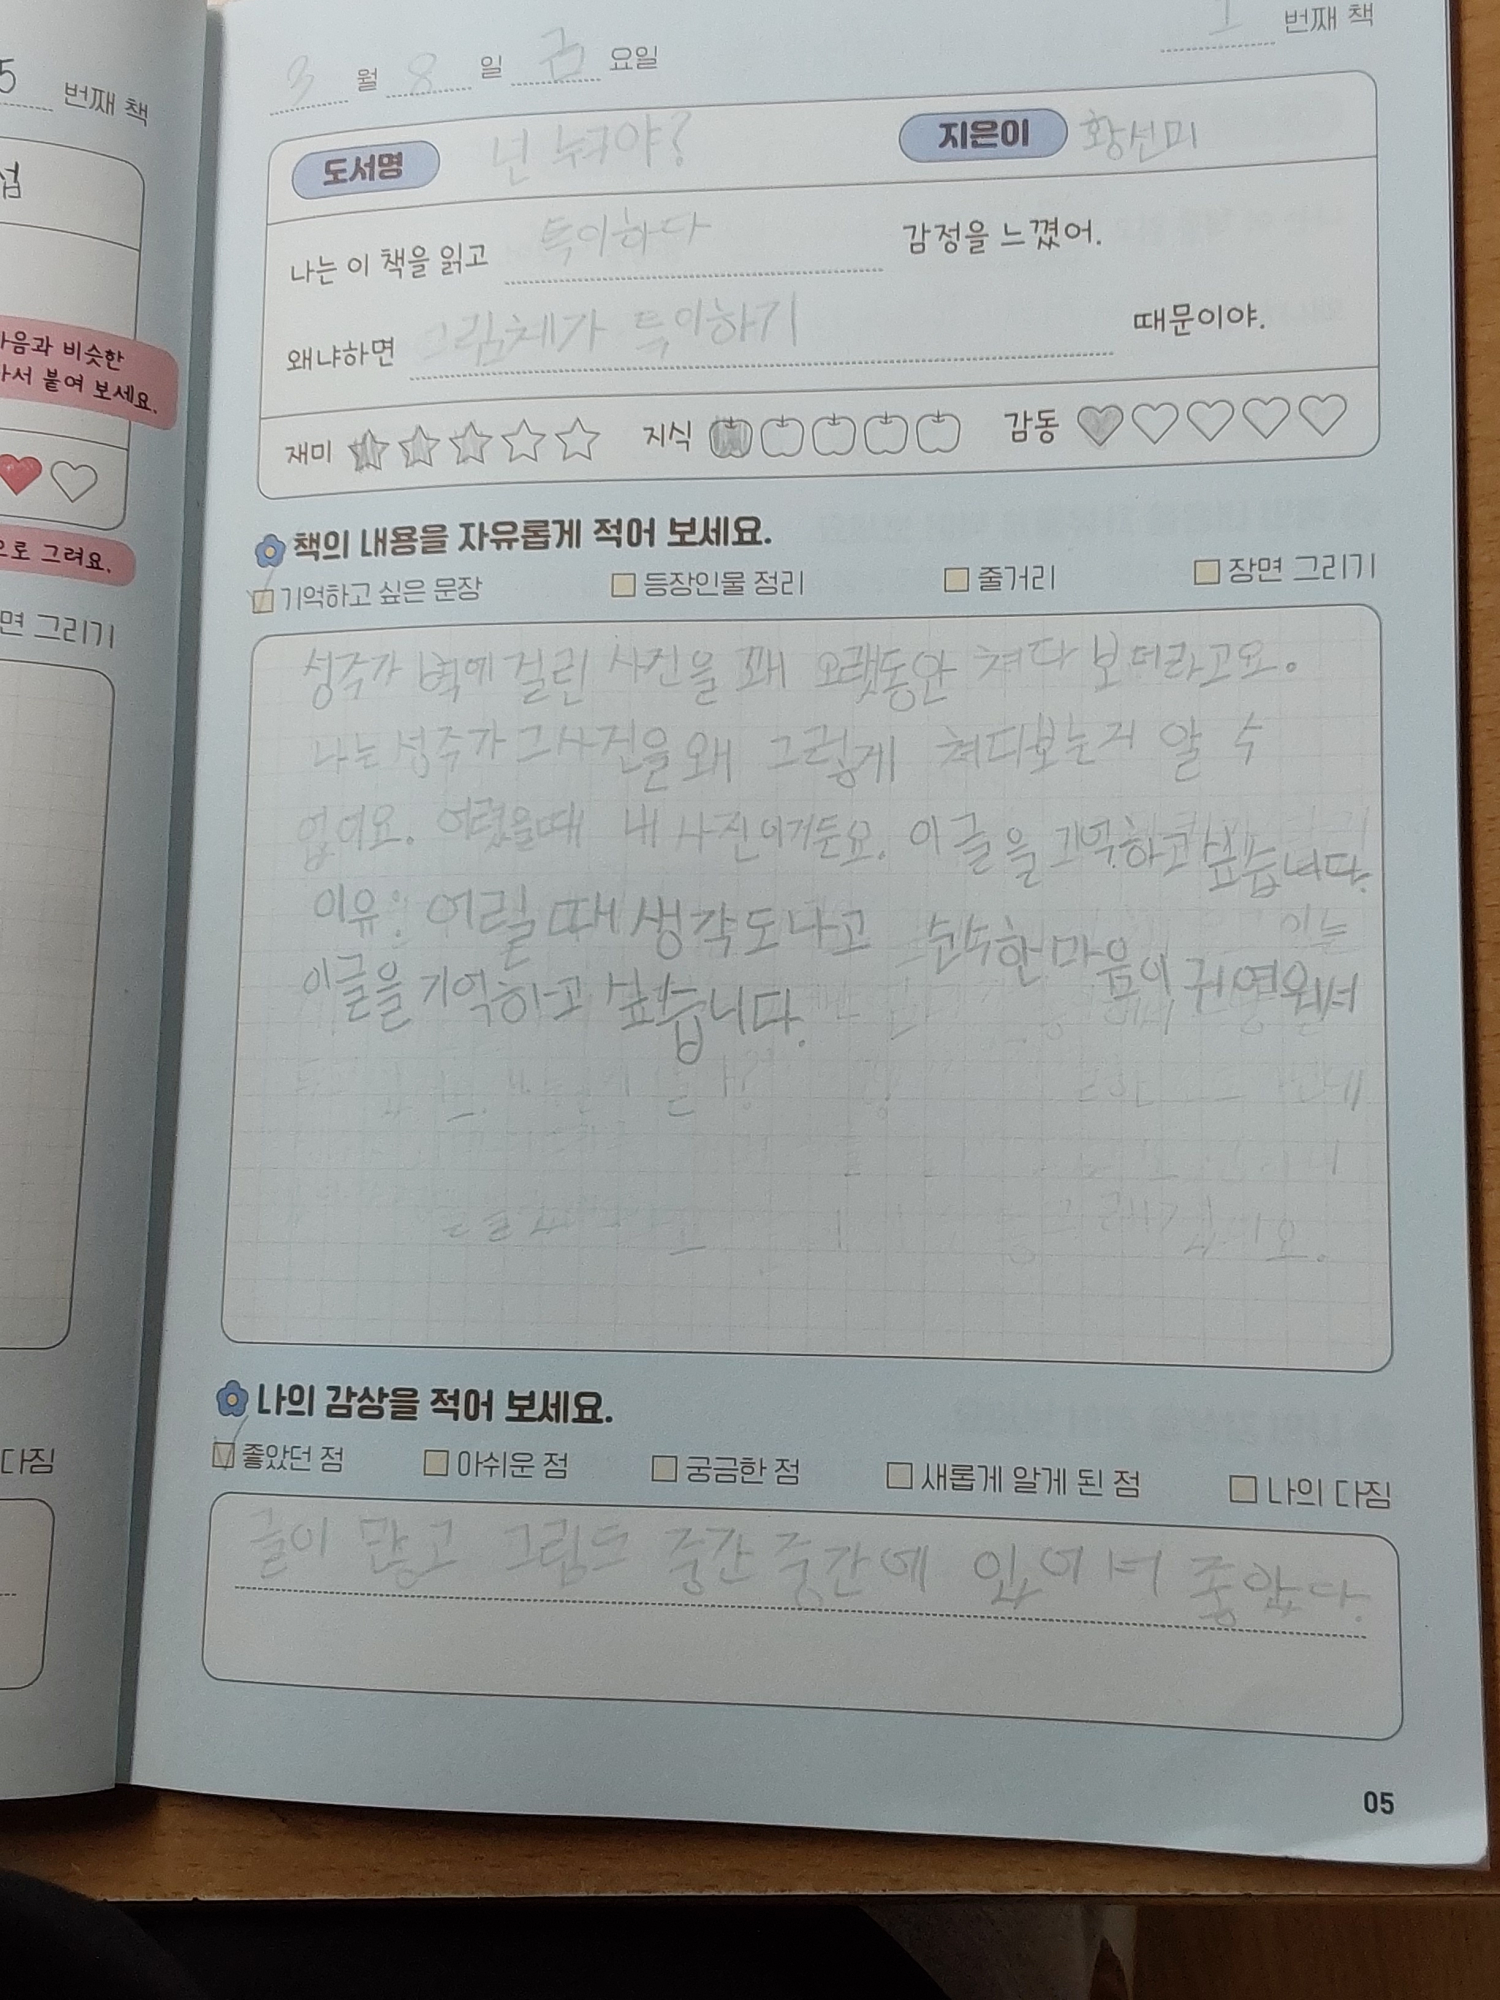 5 번째 책
섭
음과 비슷한
서 붙여 보세요.
으로 그려요.
면 그리기
다짐
3 월 8 일 금 요일
1 번째 책
도서명 넌 누구야? 지은이 황선미
나는 이 책을 읽고 특이하다 감정을 느꼈어.
왜냐하면 그림체가 특이하기 때문이야.
재미 지식 감동
책의 내용을 자유롭게 적어 보세요.
기억하고 싶은 문장 등장인물 정리 줄거리 장면 그리기
성주가 벽에 걸린 사진을 꽤 오랫동안 쳐다 보더라고요.
나는 성주가 그사진을 왜 그렇게 쳐다보는거 알 수
없어요. 어렸을때 내 사진이거든요. 이글을 기억하고싶습니다.
이유: 어릴때 생각도나고 순수한마음이 귀여워서
이글을 기억하고 싶습니다.
나의 감상을 적어 보세요.
좋았던 점 아쉬운 점 궁금한 점 새롭게 알게 된 점 나의 다짐
글이 많고 그림도 중간중간에 있어서 좋았다.
05